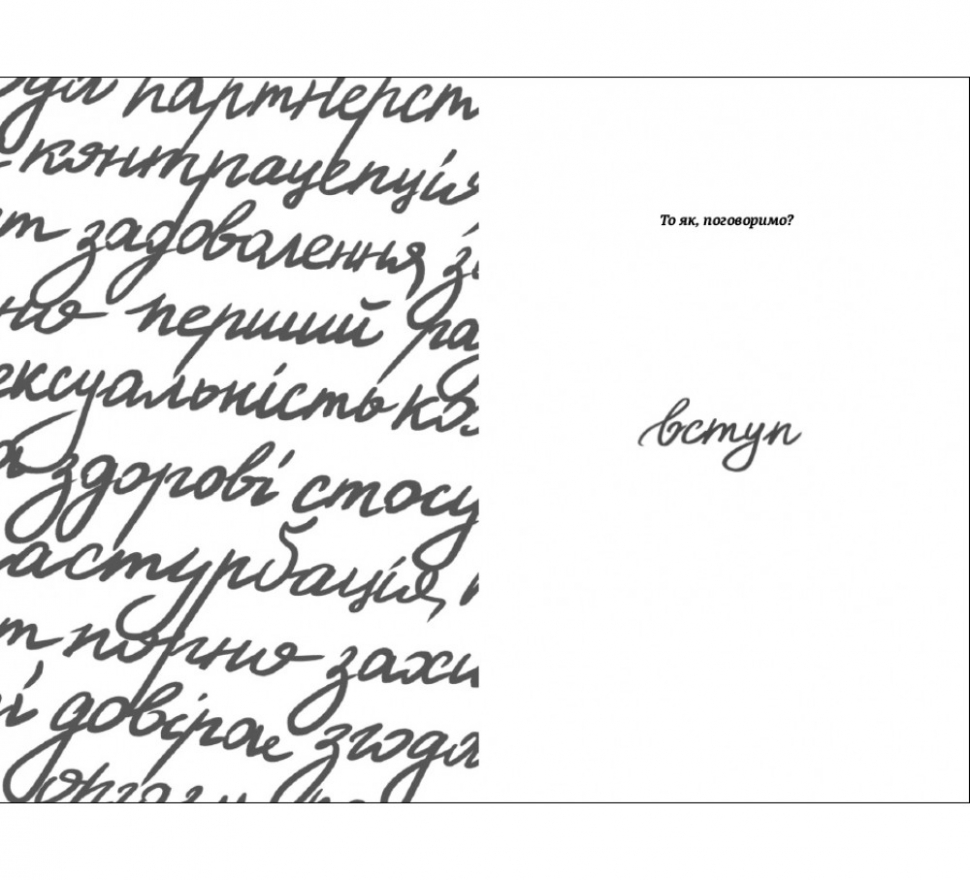 партнерст
контрацепція
т задоволення з
но перший ра
ексуальність ко
здорові стосу
астурбація,
т порно захи
і довірає згода
То як, поговоримо?
вступ